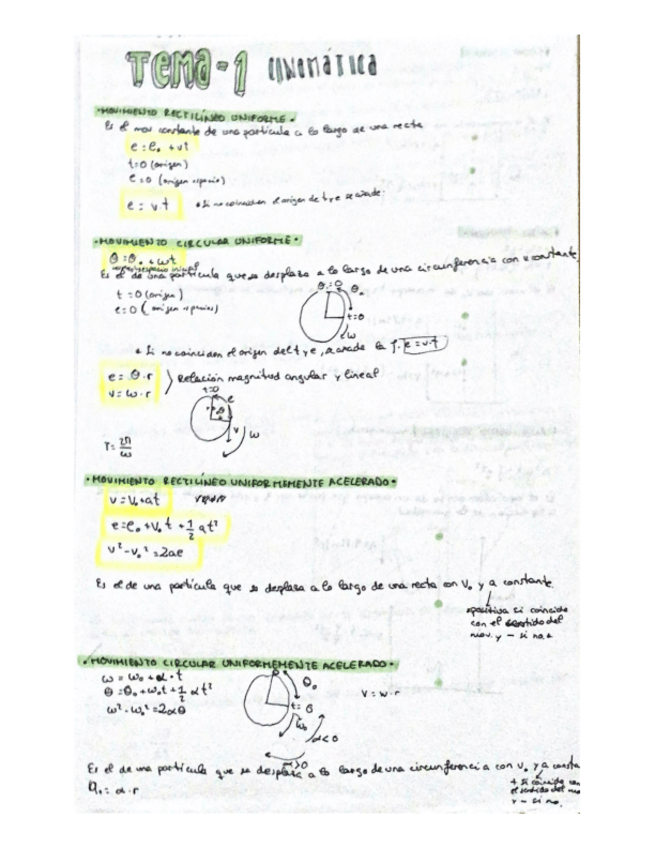 TEMA-1 CINEMÁTICA
·MOVIMIENTO RECTILÍNEO UNIFORME·
Es el mov constante de una partícula a lo largo de una recta
e = e₀ + vt
t=0 (origen)
e=0 (origen espacio)
e = v.t
* Si no coinciden el origen de t y e se añade:
·MOVIMIENTO CIRCULAR UNIFORME·
θ = θ₀ + ωt
Es el de una partícula que se desplaza a lo largo de una circunferencia con v constante
t = 0 (origen)
e = 0 (origen espacios)
θ₀=0 θ₀
t=0
ω
* Si no coinciden el origen del t y e, se añade la f. e = v.t
e = θ·r
v = ω·r
Relación magnitud angular y lineal
t=0
e
θ
v
ω
T = 2π/ω
·MOVIMIENTO RECTILÍNEO UNIFORMEMENTE ACELERADO·
v = v₀+at
e = e₀ + v₀ t + 1/2 at²
v² - v₀² = 2ae
Es el de una partícula que se desplaza a lo largo de una recta con v₀ y a constante.
positiva si coincide
con el sentido del
mov. y - si no.
·MOVIMIENTO CIRCULAR UNIFORMEMENTE ACELERADO·
ω = ω₀ + α · t
θ = θ₀ + ω₀t + 1/2 αt²
ω² - ω₀² = 2αθ
θ₀
ω₀
α<0
α>0
v = w·r
Es el de una partícula que se desplaza a lo largo de una circunferencia con v₀ y a consta
+ si coincide con
el sentido del mo
y - si no.
= α · r